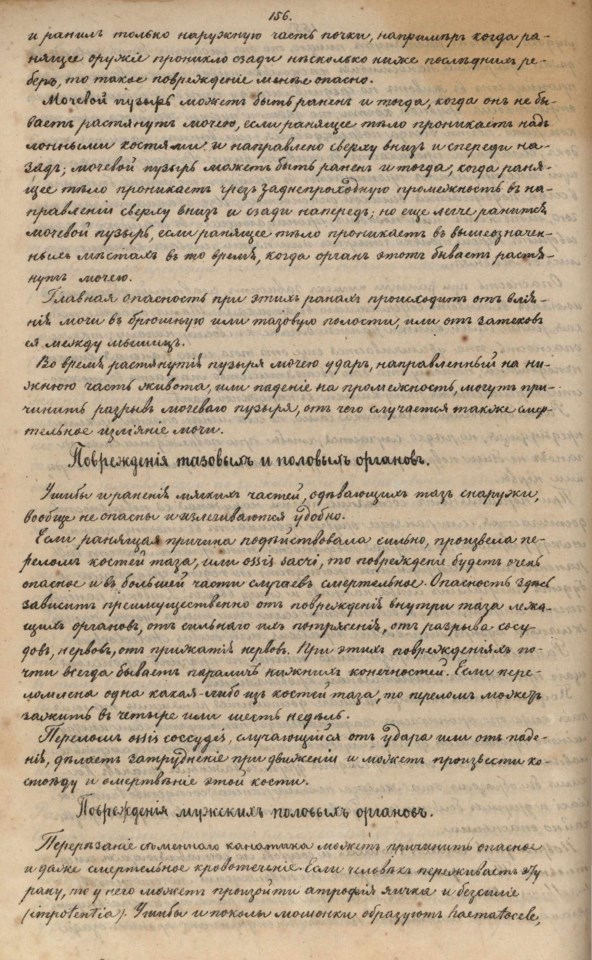 156.
и ранилъ только наружную часть почки, напримѣръ когда ра-
нящее оружіе проникло сзади нѣсколько ниже послѣднихъ ре-
беръ, то такое поврежденіе менѣе опасно.
Мочевой пузырь можетъ быть раненъ и тогда, когда онъ не бы-
ваетъ растянутъ мочею, если ранящее тѣло проникаетъ надъ
лонными костями и направлено сверху внизъ и спереди на-
задъ; мочевой пузырь можетъ быть раненъ и тогда, когда раня-
щее тѣло проникаетъ чрезъ заднепроходную промежность въ на-
правленіи сверху внизъ и сзади напередъ; но еще легче ранится
мочевой пузырь, если ранящее тѣло проникаетъ въ вышеозначен-
ныхъ мѣстахъ въ то время, когда органъ этотъ бываетъ растя-
нутъ мочею.
Главная опасность при этихъ ранахъ происходитъ отъ влія-
нія мочи въ брюшную или тазовую полости, или отъ затековъ
ея между мышицъ.
Во время растянутія пузыря мочею ударъ, направленный на ни-
жнюю часть живота, или паденіе на промежность, могутъ при-
чинить разрывъ мочеваго пузыря, отъ чего случается также смер-
тельное изліяніе мочи.
Поврежденія тазовыхъ и половыхъ органовъ.
Ушибы и раненія мягкихъ частей, одѣвающихъ тазъ снаружи,
вообще не опасны и излегиваются удобно.
Если ранящая причина подѣйствовала сильно, произвела пе-
реломъ костей таза, или ossis sacri, то поврежденіе будетъ очень
опасное и въ большей части случаевъ смертельное. Опасность здѣсь
зависитъ преимущественно отъ поврежденія внутри таза лежа-
щихъ органовъ, отъ сильнаго ихъ потрясенія, отъ разрыва сосу-
довъ, нервовъ, отъ прижатія нервовъ. При этихъ поврежденіяхъ по-
чти всегда бываетъ параличъ нижнихъ конечностей. Если пере-
ломлена одна какая-либо изъ костей таза, то переломъ можетъ
зажить въ четыре или шесть недѣль.
Переломъ ossis coccygis, случающійся отъ удара или отъ паде-
нія, дѣлаетъ затрудненіе при движеніи и можетъ произвести ко-
стоѣду и омертвѣніе этой кости.
Поврежденія мужскихъ половыхъ органовъ.
Перерѣзаніе сѣменнаго канатика можетъ причинить опасное
и даже смертельное кровотеченіе. Если человѣкъ переживаетъ эту
рану, то у него можетъ произойти атрофія яичка и безсиліе
(impotentia). Ушибы и поколы мошонки образуютъ haematocele,